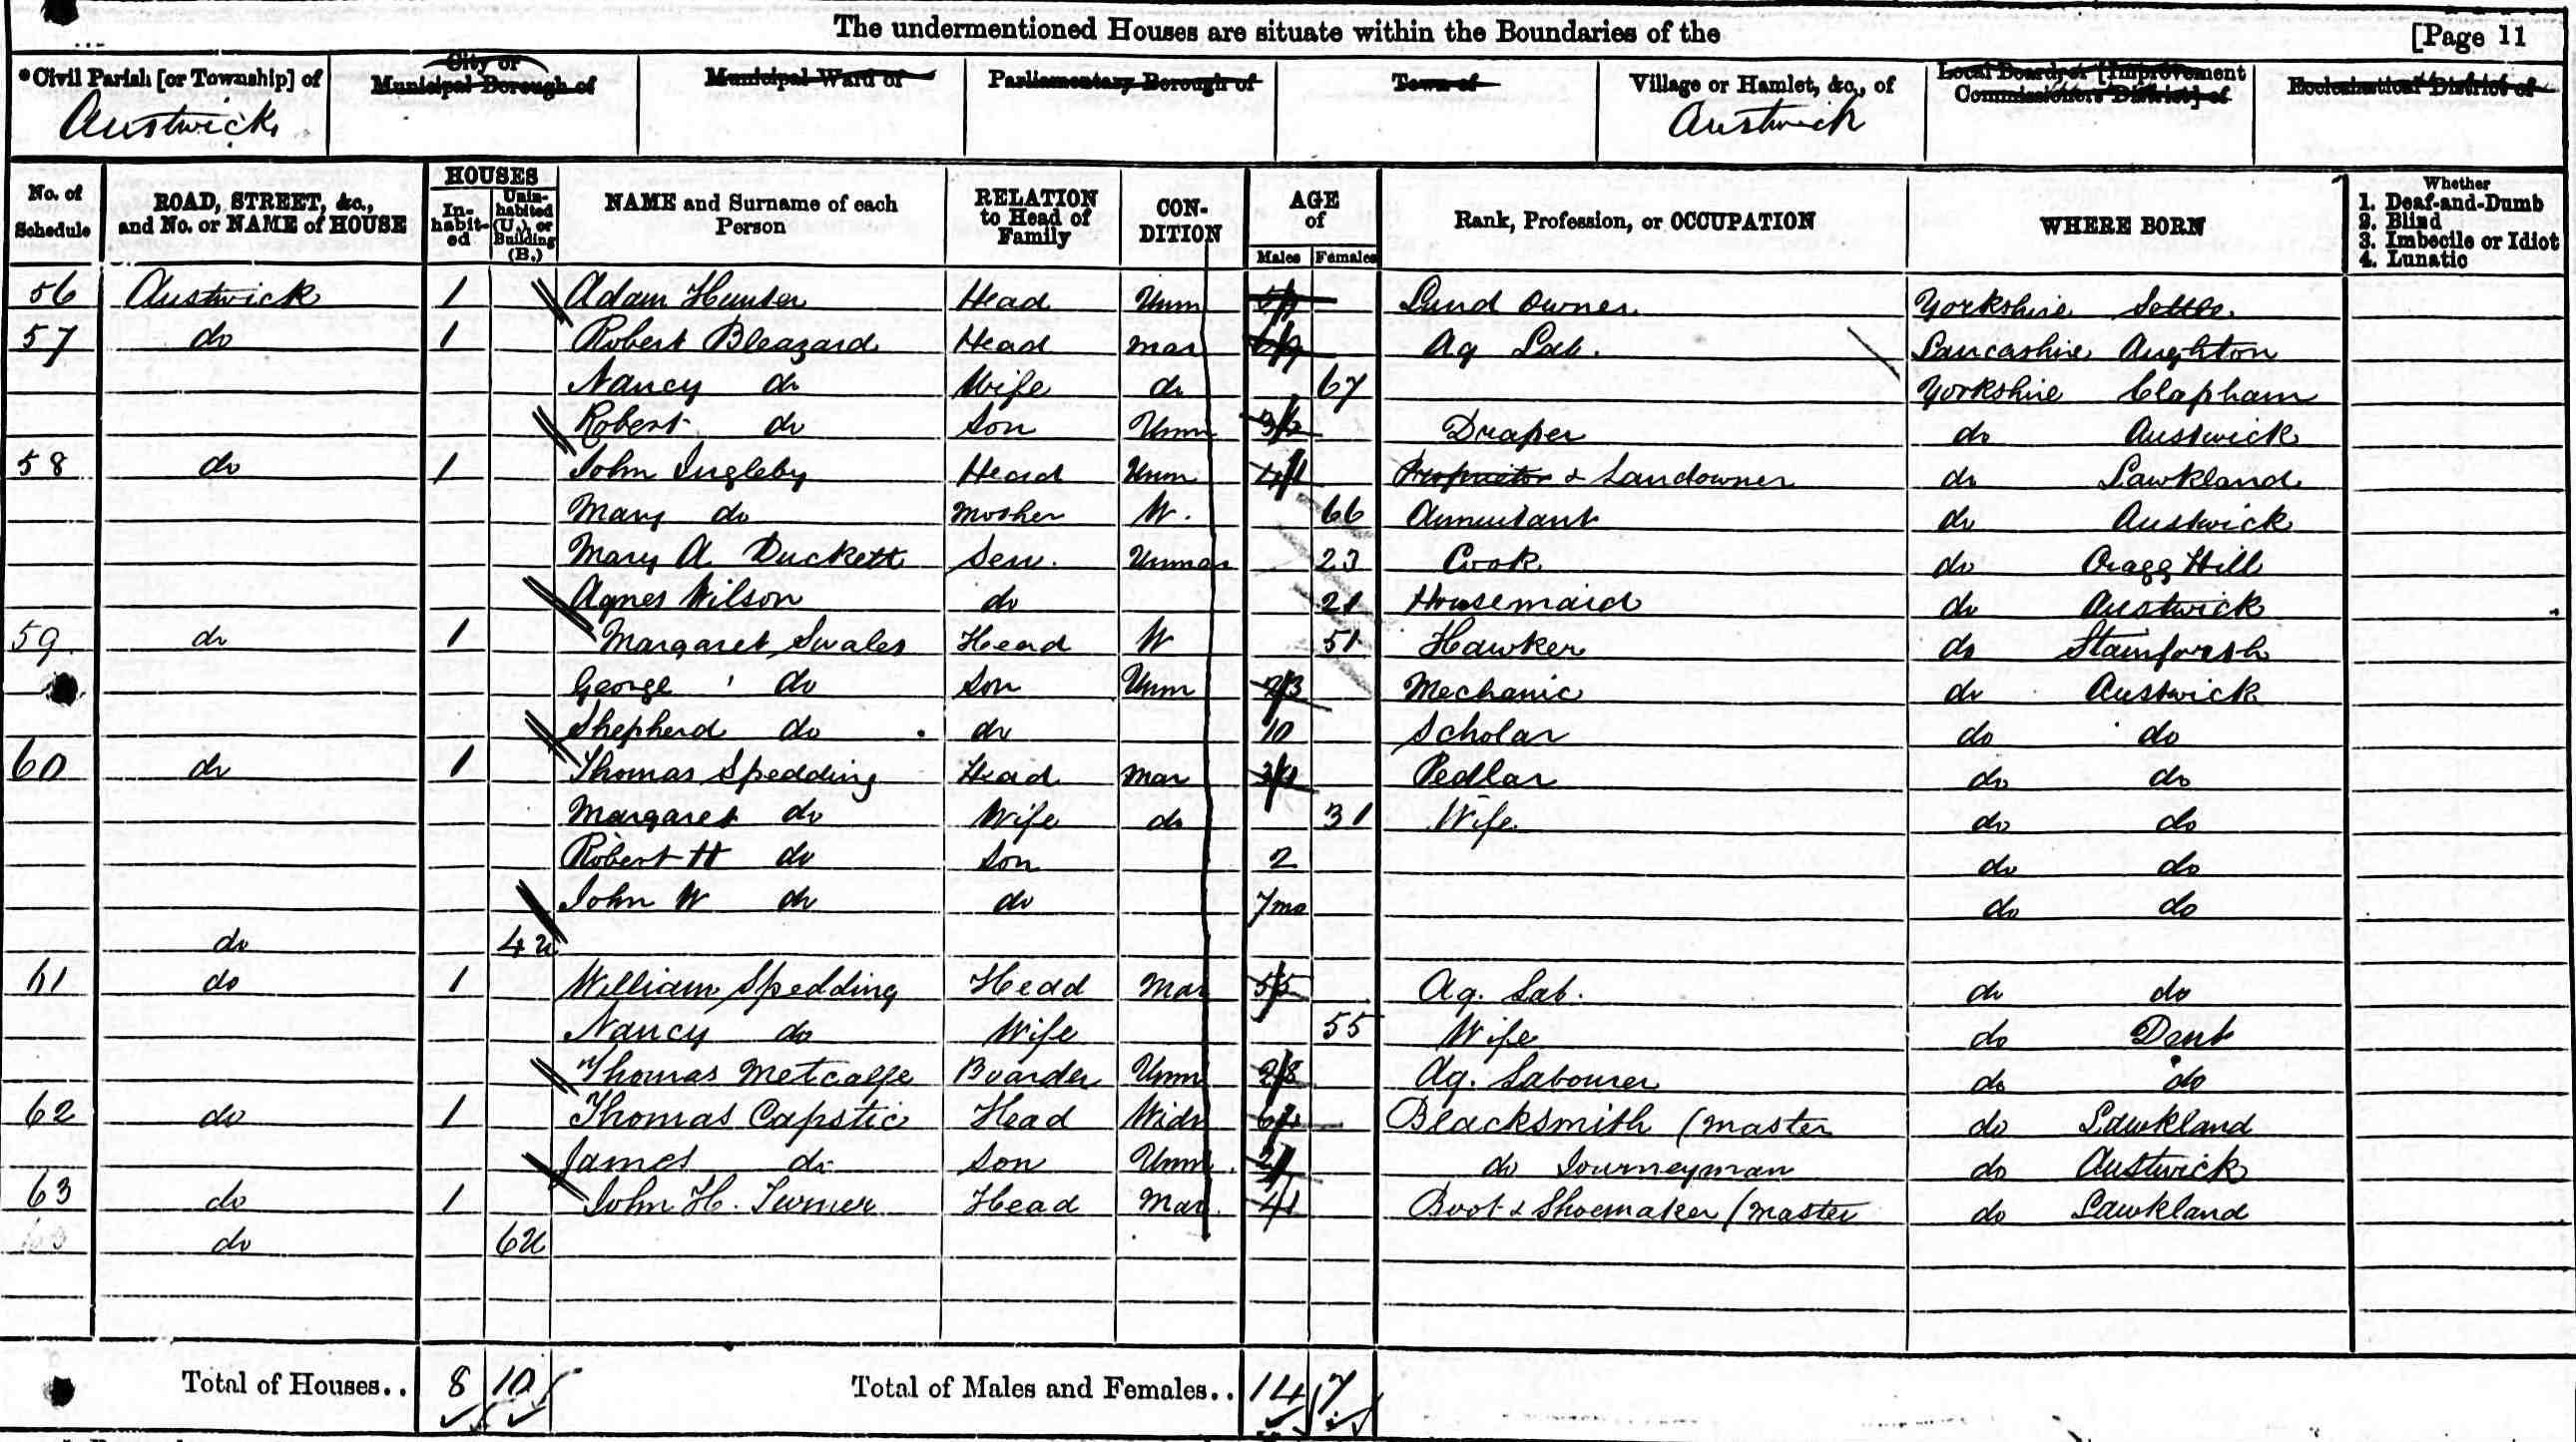 The undermentioned Houses are situate within the Boundaries of the [Page 11
Civil Parish [or Township] of City or Municipal Borough of Municipal Ward of Parliamentary Borough of Town of Village or Hamlet, &c., of Local Board, or [Improvement Commissioners District] of Ecclesiastical District of
Austwick Austwick
No. of Schedule ROAD, STREET, &c., and No. or NAME of HOUSE HOUSES In-habit-ed Unin-habited (U.), or Building (B.) NAME and Surname of each Person RELATION to Head of Family CON-DITION AGE of Males Females Rank, Profession, or OCCUPATION WHERE BORN Whether 1. Deaf-and-Dumb 2. Blind 3. Imbecile or Idiot 4. Lunatic
56 Austwick 1 Adam Hunter Head Unm Land Owner Yorkshire Settle
57 do 1 Robert Bleazard Head Mar 69 Ag Lab. Lancashire Aughton
Nancy do Wife do 67 Yorkshire Clapham
Robert do Son Unm 32 Draper do Austwick
58 do 1 John Ingleby Head Unm 41 Proprietor & Landowner do Lawkland
Mary do Mother W. 66 Annuitant do Austwick
Mary A Duckett Serv. Unmar 23 Cook do Cragg Hill
Agnes Wilson do 21 Housemaid do Austwick
59 do 1 Margaret Swales Head W 51 Hawker do Stainforth
George do Son Unm 23 Mechanic do Austwick
Shepherd do do 10 Scholar do do
60 do 1 Thomas Spedding Head Mar 31 Pedlar do do
Margaret do Wife do 31 Wife do do
Robert H do Son 2 do do
John W do do 7mo do do
do 4u
61 do 1 William Spedding Head Mar 55 Ag. Lab. do do
Nancy do Wife 55 Wife do Dent
Thomas Metcalfe Boarder Unm 28 Ag. Labourer do do
62 do 1 Thomas Capstic Head Widr 64 Blacksmith (Master do Lawkland
James do Son Unm. do Journeyman do Austwick
63 do 1 John H. Turner Head Mar 41 Boot & Shoemaker (Master do Lawkland
do 6U
Total of Houses.. 8 10 Total of Males and Females.. 14 7